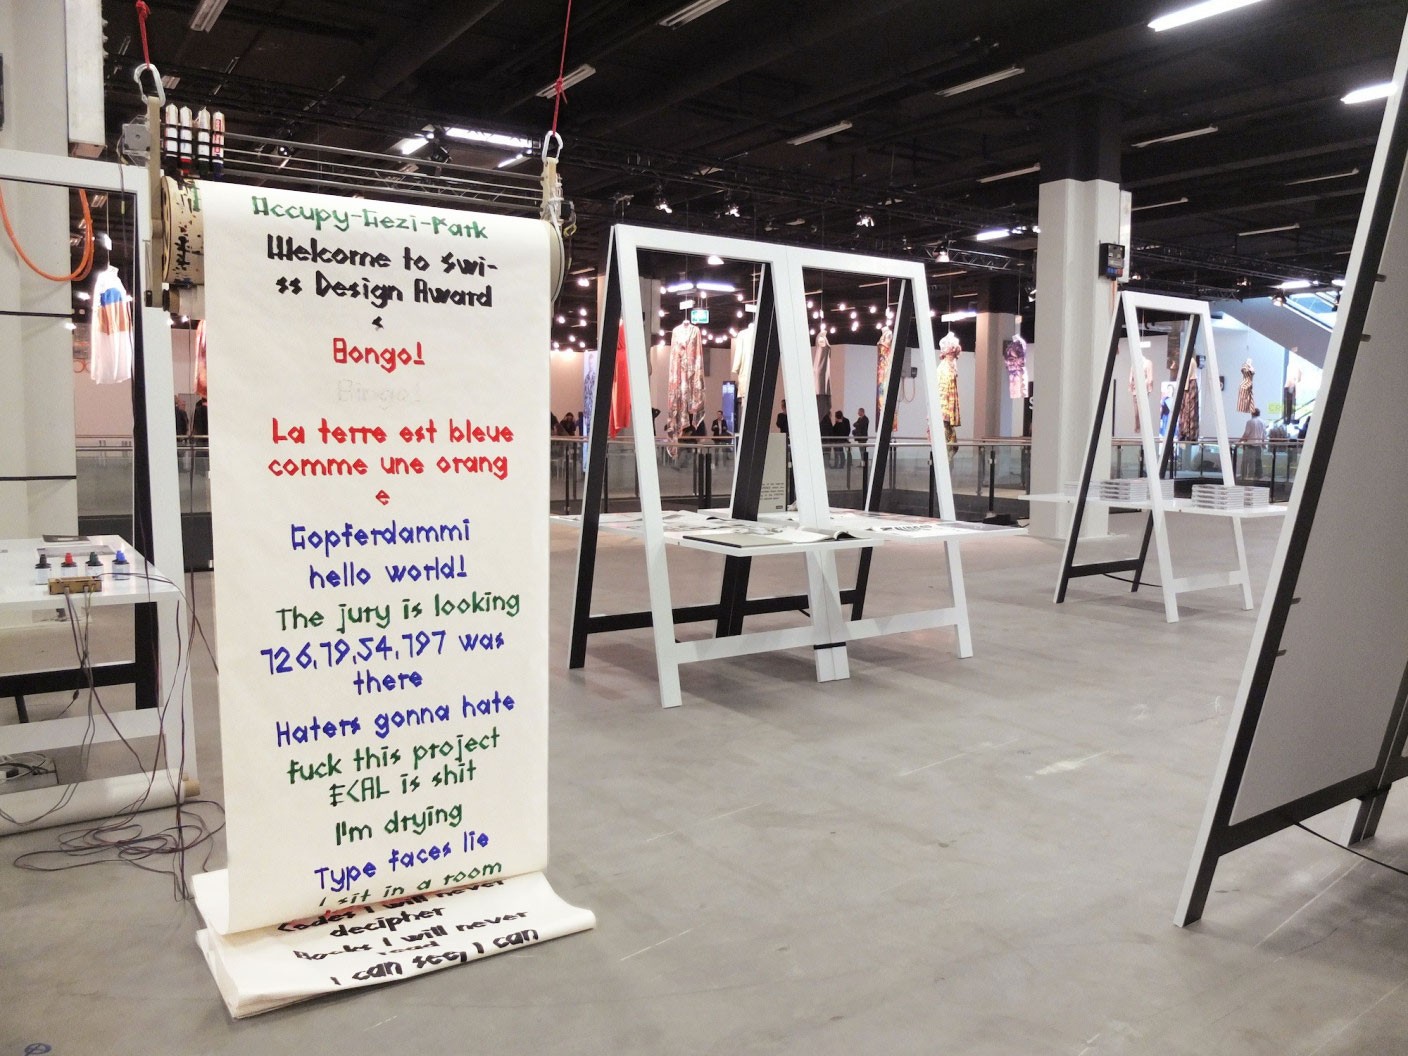 Occupy-Gezi-Park
Welcome to Swi-
ss Design Award
s
Bongo!
Bingo!
La terre est bleue
comme une orang
e
Gopferdammi
hello world!
The jury is looking
126,79,54,197 was
there
Haters gonna hate
fuck this project
ECAL is shit
I'm drying
Type faces lie
I sit in a room
Codes I will never
decipher
Books I will never
read
I can see, I can